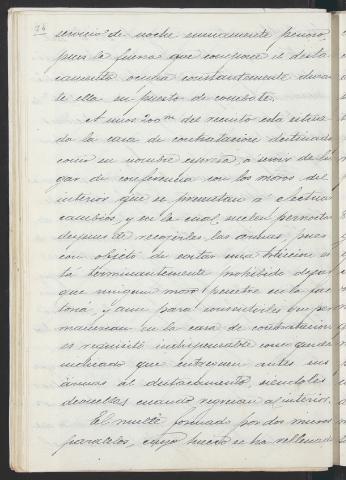 26
servicio de noche sumamente penoso
pues la fuerza que compone el desta-
camento ocupa constantemente duran-
te ella su puesto de combate.
A unos 200m del recinto está estira
do la casa de contratacion destinada
como su nombre espresa, a servir de lu
gar de conferencia con los moros del
interior que se presentan a efectuar
cambios, y en la cual suelen pernoctar
despues de recojerles las armas, pues
con objeto de evitar una traicion es
tá terminantemente prohibido dejar
que ningun moro penetre en la fac
toria, y aun para consentirles que per
manezcan en la casa de contratacion
es requisito indispensable como queda
indicado que entreguen antes sus
armas al destacamento, siendoles
devueltas cuando regresan al interior.
El muelle formado por dos muros
paralelos, cuyo hueco se ha rellenado